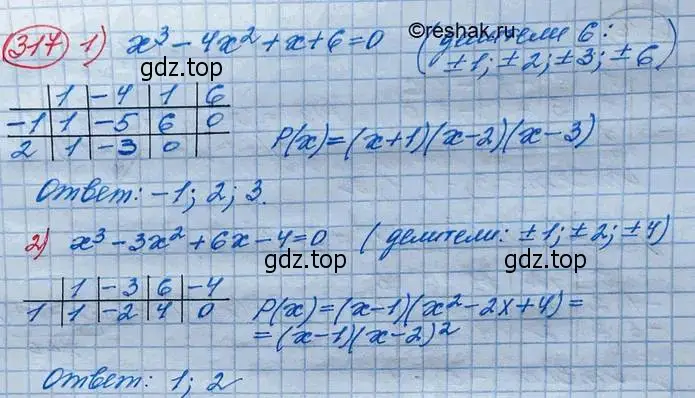 317 1) x³ - 4x² + x + 6 = 0 (делители 6:
±1; ±2; ±3; ±6)
©reshak.ru
gdz.top gdz.top
1 | -4 | 1 | 6
-1 | 1 | -5 | 6 | 0
2 | 1 | -3 | 0
P(x) = (x+1)(x-2)(x-3)
Ответ: -1; 2; 3.
2) x³ - 3x² + 6x - 4 = 0 (делители: ±1; ±2; ±4)
gdz.top gdz.top
1 | -3 | 6 | -4
1 | 1 | -2 | 4 | 0
P(x) = (x-1)(x² - 2x + 4) =
= (x-1)(x-2)²
gdz.top gdz.top
Ответ: 1; 2